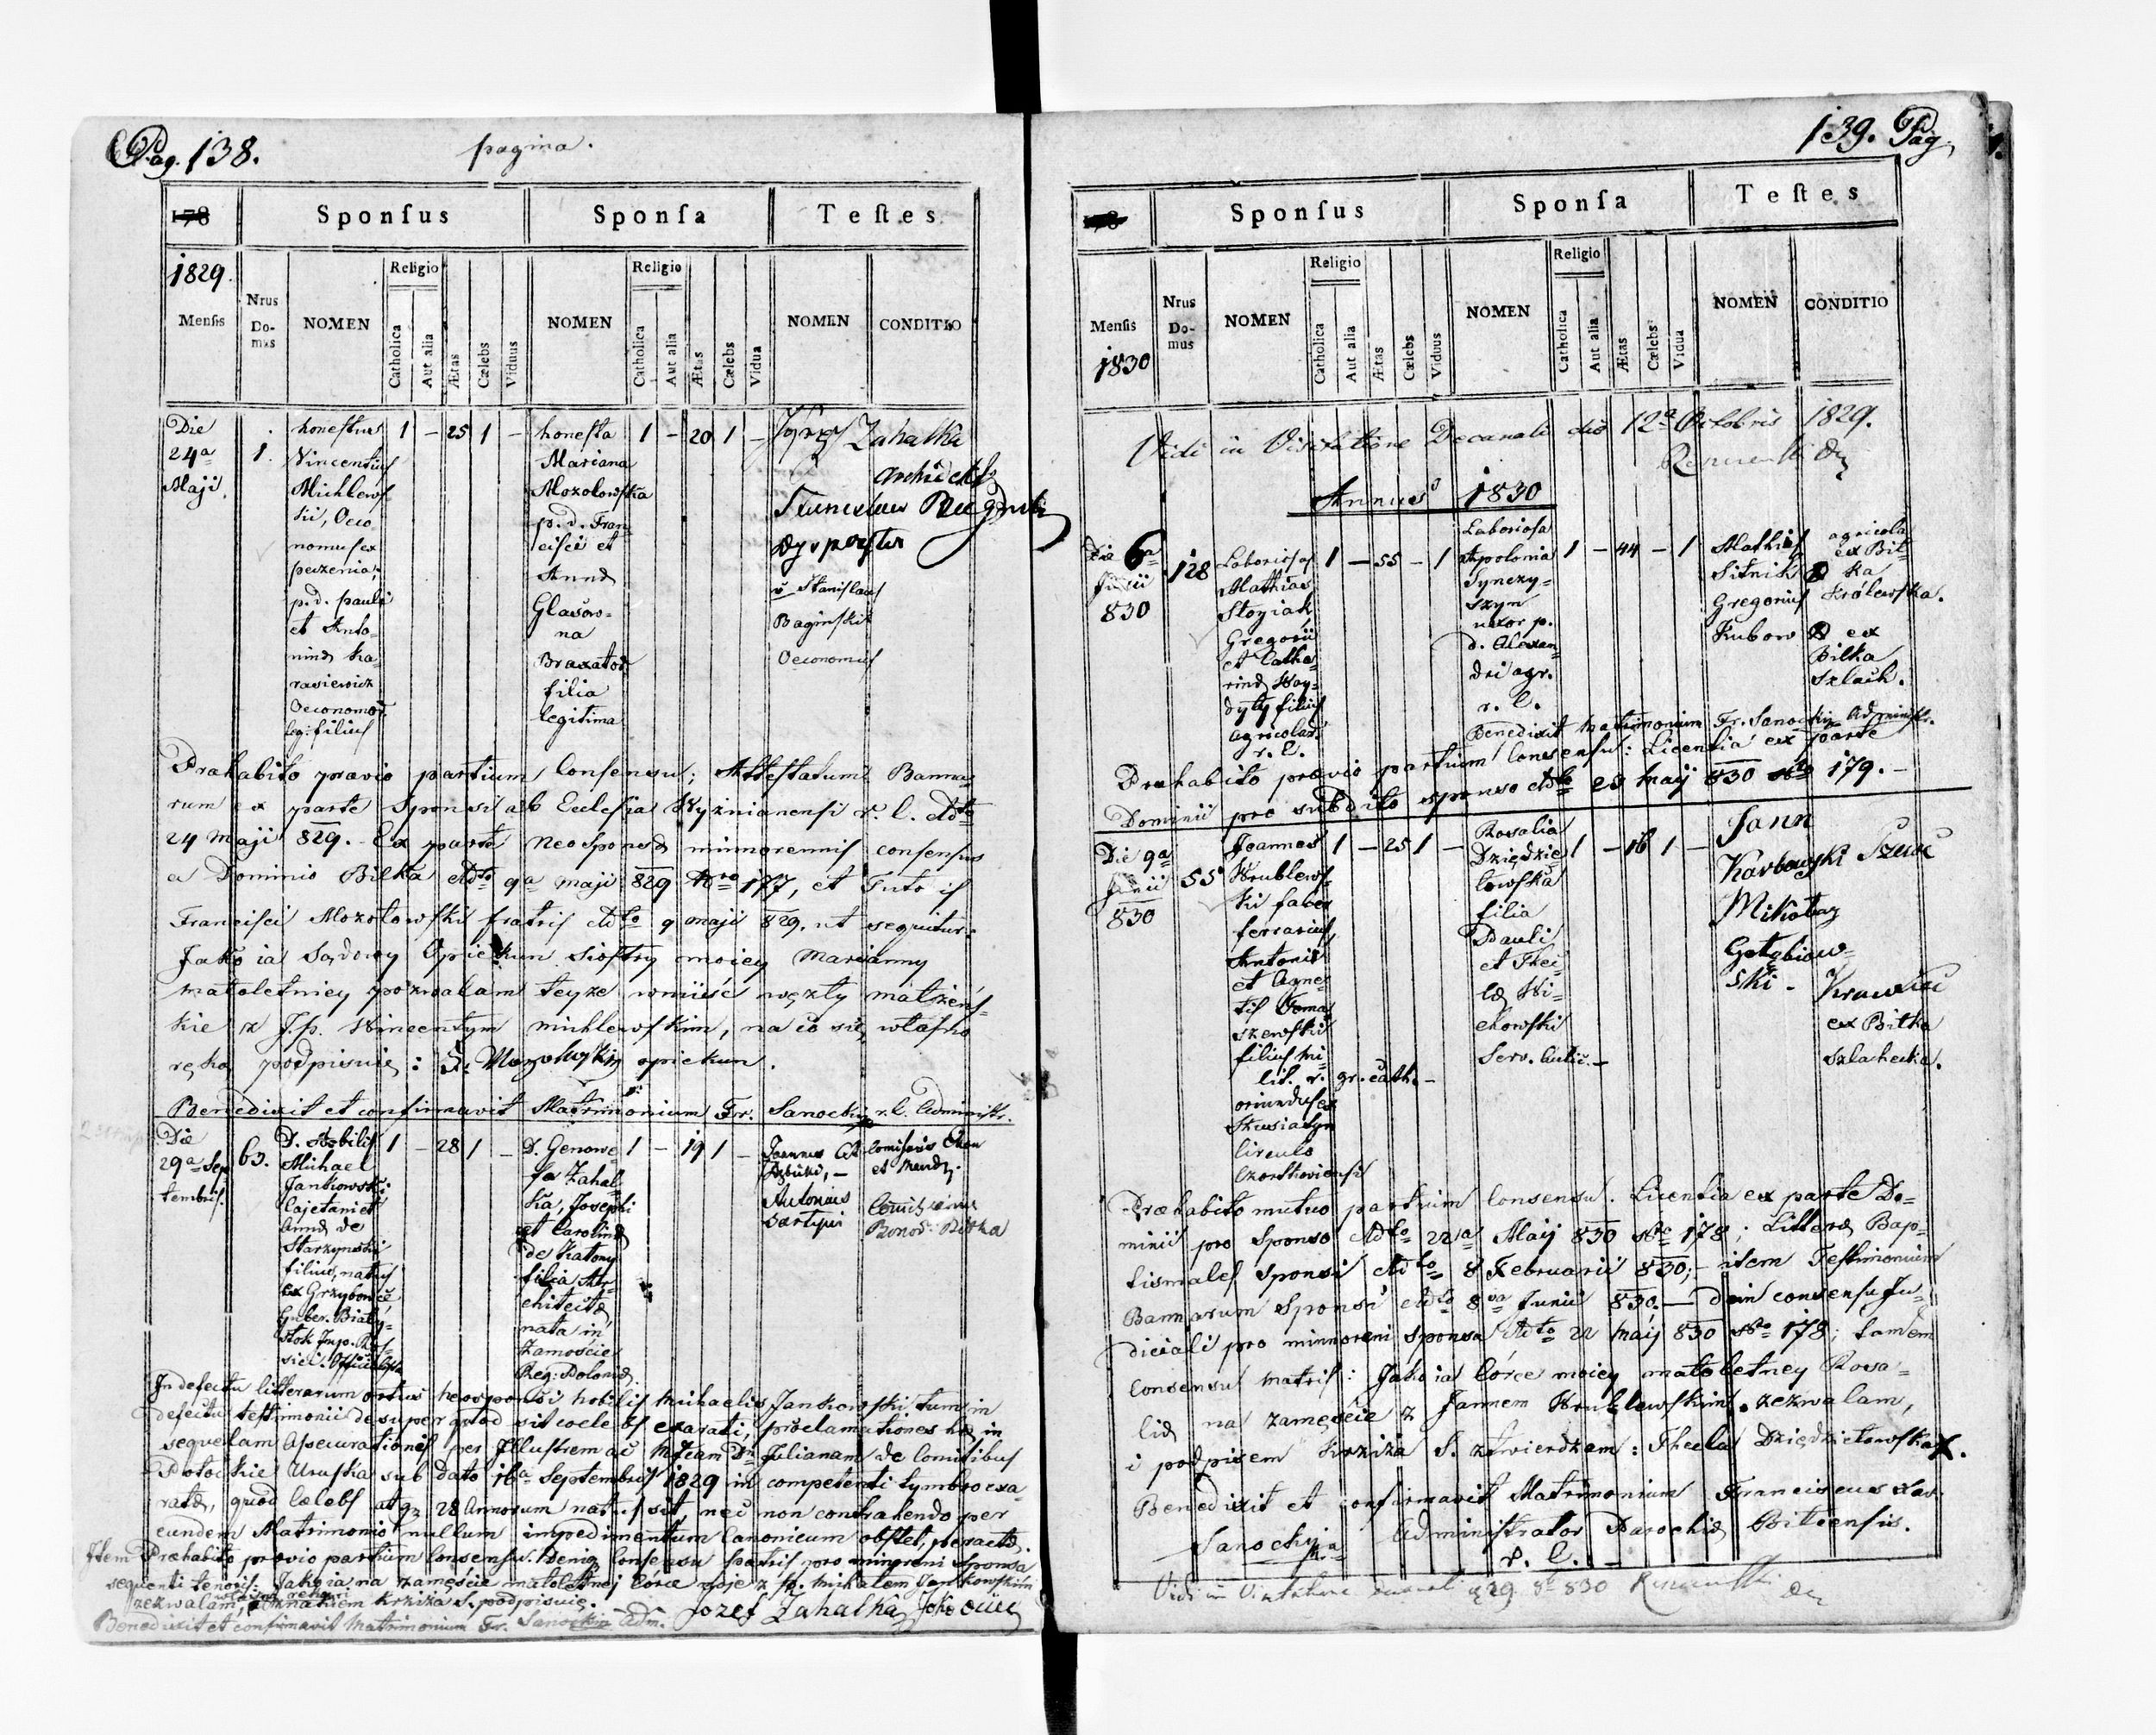 Pag. 138.
pagina.
178
Sponſus
Sponſa
Teſtes
1829.
Menſis
Nrus Do-mus
NOMEN
Religio
Catholica
Aut alia
Ætas
Cælebs
Viduus
NOMEN
Religio
Catholica
Aut alia
Ætas
Cælebs
Vidua
NOMEN
CONDITIO
Die
24a
Maji.
1.
honeſtus
Vincentiuſ
Michlewſ
ki, Oeco
nomuſ ex
p. d. Pauli
et Anto-
ninæ Ka-
rasiewicz
Oeconomor.
leg: filiuſ
1 – 25 1 –
honeſta
Mariana
Mozolowſka
p. d. Fran-
ciſci et
Annæ
Glasero-
na
Braxator
filia
legitima
1 – 20 1 –
Józef Zahalka
Stanislaw
Staniſlauſ
Baginſki
Oeconomuſ
Præhabito prævio partium Conſensu; Atteſtatum Banna-
rum ex parte Sponsi ab Eccleſia Wyznianensi r. l. ddto
24 Maji 829. Ex parte Neosponsæ minorennis conſensus
a Dominio Bilka ddto 9a maji 829 Nro 177, et Tutoriſ
Franciſci Mozolowſki fratris ddto 9 maji 829. ut sequitur:
Jako ia Sądowy Opiekun sioſtry moiey Marianny
małoletniey pozwalam teyże wniiść węzły małżeńſ-
kie z J.p. Wincentym michlewſkim, na co się właſno
ręką podpisuię: opiekun.
Benedixit et confirmavit Matrimonium Fr. Sanocki r. l. Adminiſtr.
Die
29a Sep
tembris.
63.
D. Nobiliſ
Michael
Jankowski
Cajetani et
Annæ de
Starzynski
filius, natuſ
ex Grzybowce
Guber. Biały-
stok Imp. Roſ-
sici.
1 – 28 1 –
D. Genowe-
fa Zahal-
ka, Josephi
et Carolinæ
de Katony
filia Ar-
chitectæ
nata in
Zamoście
Reg: Poloniæ.
1 – 19 1 –
Joannes
Antonius
In defectu litterarum ortus neosponsi nobilis Michaelis Jankowſki tum in
defectu teſtimonii desuper quod sit coelebſ exarati, proclamationes hæ in
sequelam Aſecurationiſ per Illuſtrem ac Julianam de Comitibuſ
Potockie Uruſka sub dato 16a Septembriſ 1829 in competenti Symbro exa-
ratæ, quod Cælebſ atq 28 Annorum natuſ sit, nec non contrahendo per
eundem Matrimonio nullum impedimentum Canonicum obſtet, peractæ.
Item Præhabito prævio partium Conſensu. Deniq Conſensu Patriſ pro minoreni Sponsa
sequenti tenoris: Jako ia na zamęście małoletniej Córce moje z J.p. Michałem Jankowſkim
zezwalam, znakiem krzyża S. podpisuię. Jozef Zahalka Jako Ociec
Benedixit et confirmavit Matrimonium Fr. Sanocki Adm.
139. Pag.
178
Sponſus
Sponſa
Teſtes
Menſis
1830
Nrus Do-mus
NOMEN
Religio
Catholica
Aut alia
Ætas
Cælebs
Viduus
NOMEN
Religio
Catholica
Aut alia
Ætas
Cælebs
Vidua
NOMEN
CONDITIO
Vidi in Visitatione Decanali die 12a Octobris 1829.
Annus 1830
Die 6a
Junii
830
128
Laboriosuſ
Mathias
Stoziak
Gregorii
et Catha-
rinæ Woy-
dyły filiuſ
agricola
r. l.
1 – 55 – 1
Laboriosa
Apolonia
Synczy-
szyn
uxor p.
d. Alexan-
dri agr.
r. l.
1 – 44 – 1
Mathiaſ
Sitnik
Gregoriuſ
Kubow
agricola
ex Bił-
ka
Królewſka.
ex
Bilka
szlach.
Benedixit Matrimonium Fr. Sanocki Adminiſtr.
Præhabito prævio partium Conſensu: Licentia ex parte
Dominii pro subdito sponso ddto 20 Maij 830 Nro 179. –
Die 9a
Junii
830
55
Joannes
Wrublewſ-
ki faber
ferrariuſ,
Antonii
et Agne-
tiſ Toma
szewſki
filiuſ mi-
lit. r. gr. cath. –
oriunduſ ex
Circulo
Czortkoviensi
1 – 25 1 –
Rosalia
Dziędzie-
lowſka
filia
Pauli
et Thec-
læ Wi-
chowſki
Serv. Aulic. –
1 – 16 1 –
Jann
Karbowſki Szewc
Mikołay
Gołębiow-
ski – Krawiec
ex Bilka
szlachecka.
Præhabito mutuo partium Conſensu. Licentia ex parte Do-
minii pro Sponso ddto 22a Maij 830 Nro 178; Litteræ Bap-
tismaleſ Sponsi ddto 8 Februarii 830; item Teſtimonium
Bannarum Sponsi ddto 8va Junii 830. – Dein conſensu Ju-
diciali pro minoreni sponsa ddto 22 Maij 830 Nro 178; tandem
Conſensu Matriſ: Jako ia Córce moiey małoletney Rosa-
lii na zamęście z Jannem Wrublewſkim zezwalam,
i podpisem krzyża S. zatwierdzam: Thecla Dziędzielowſka X.
Benedixit et confirmavit Matrimonium Franciscus Xav.
Sanocki Adminiſtrator Parochiæ Bilcensis.
r. l. –
Vidi in Visitatione Decanali 29 8br 830